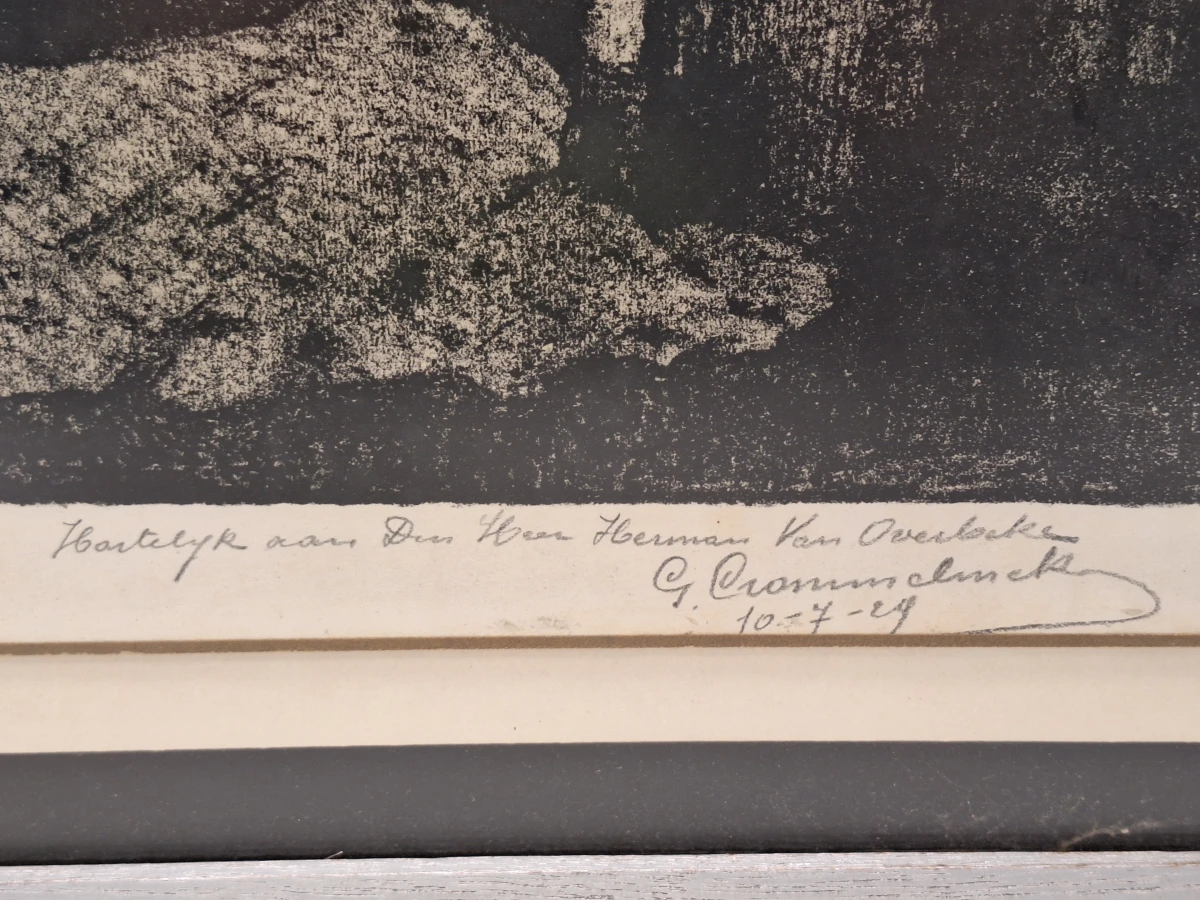 Hartelyk aan Den Heer Herman Van Overbeke
G. Crommelinck
10-7-29